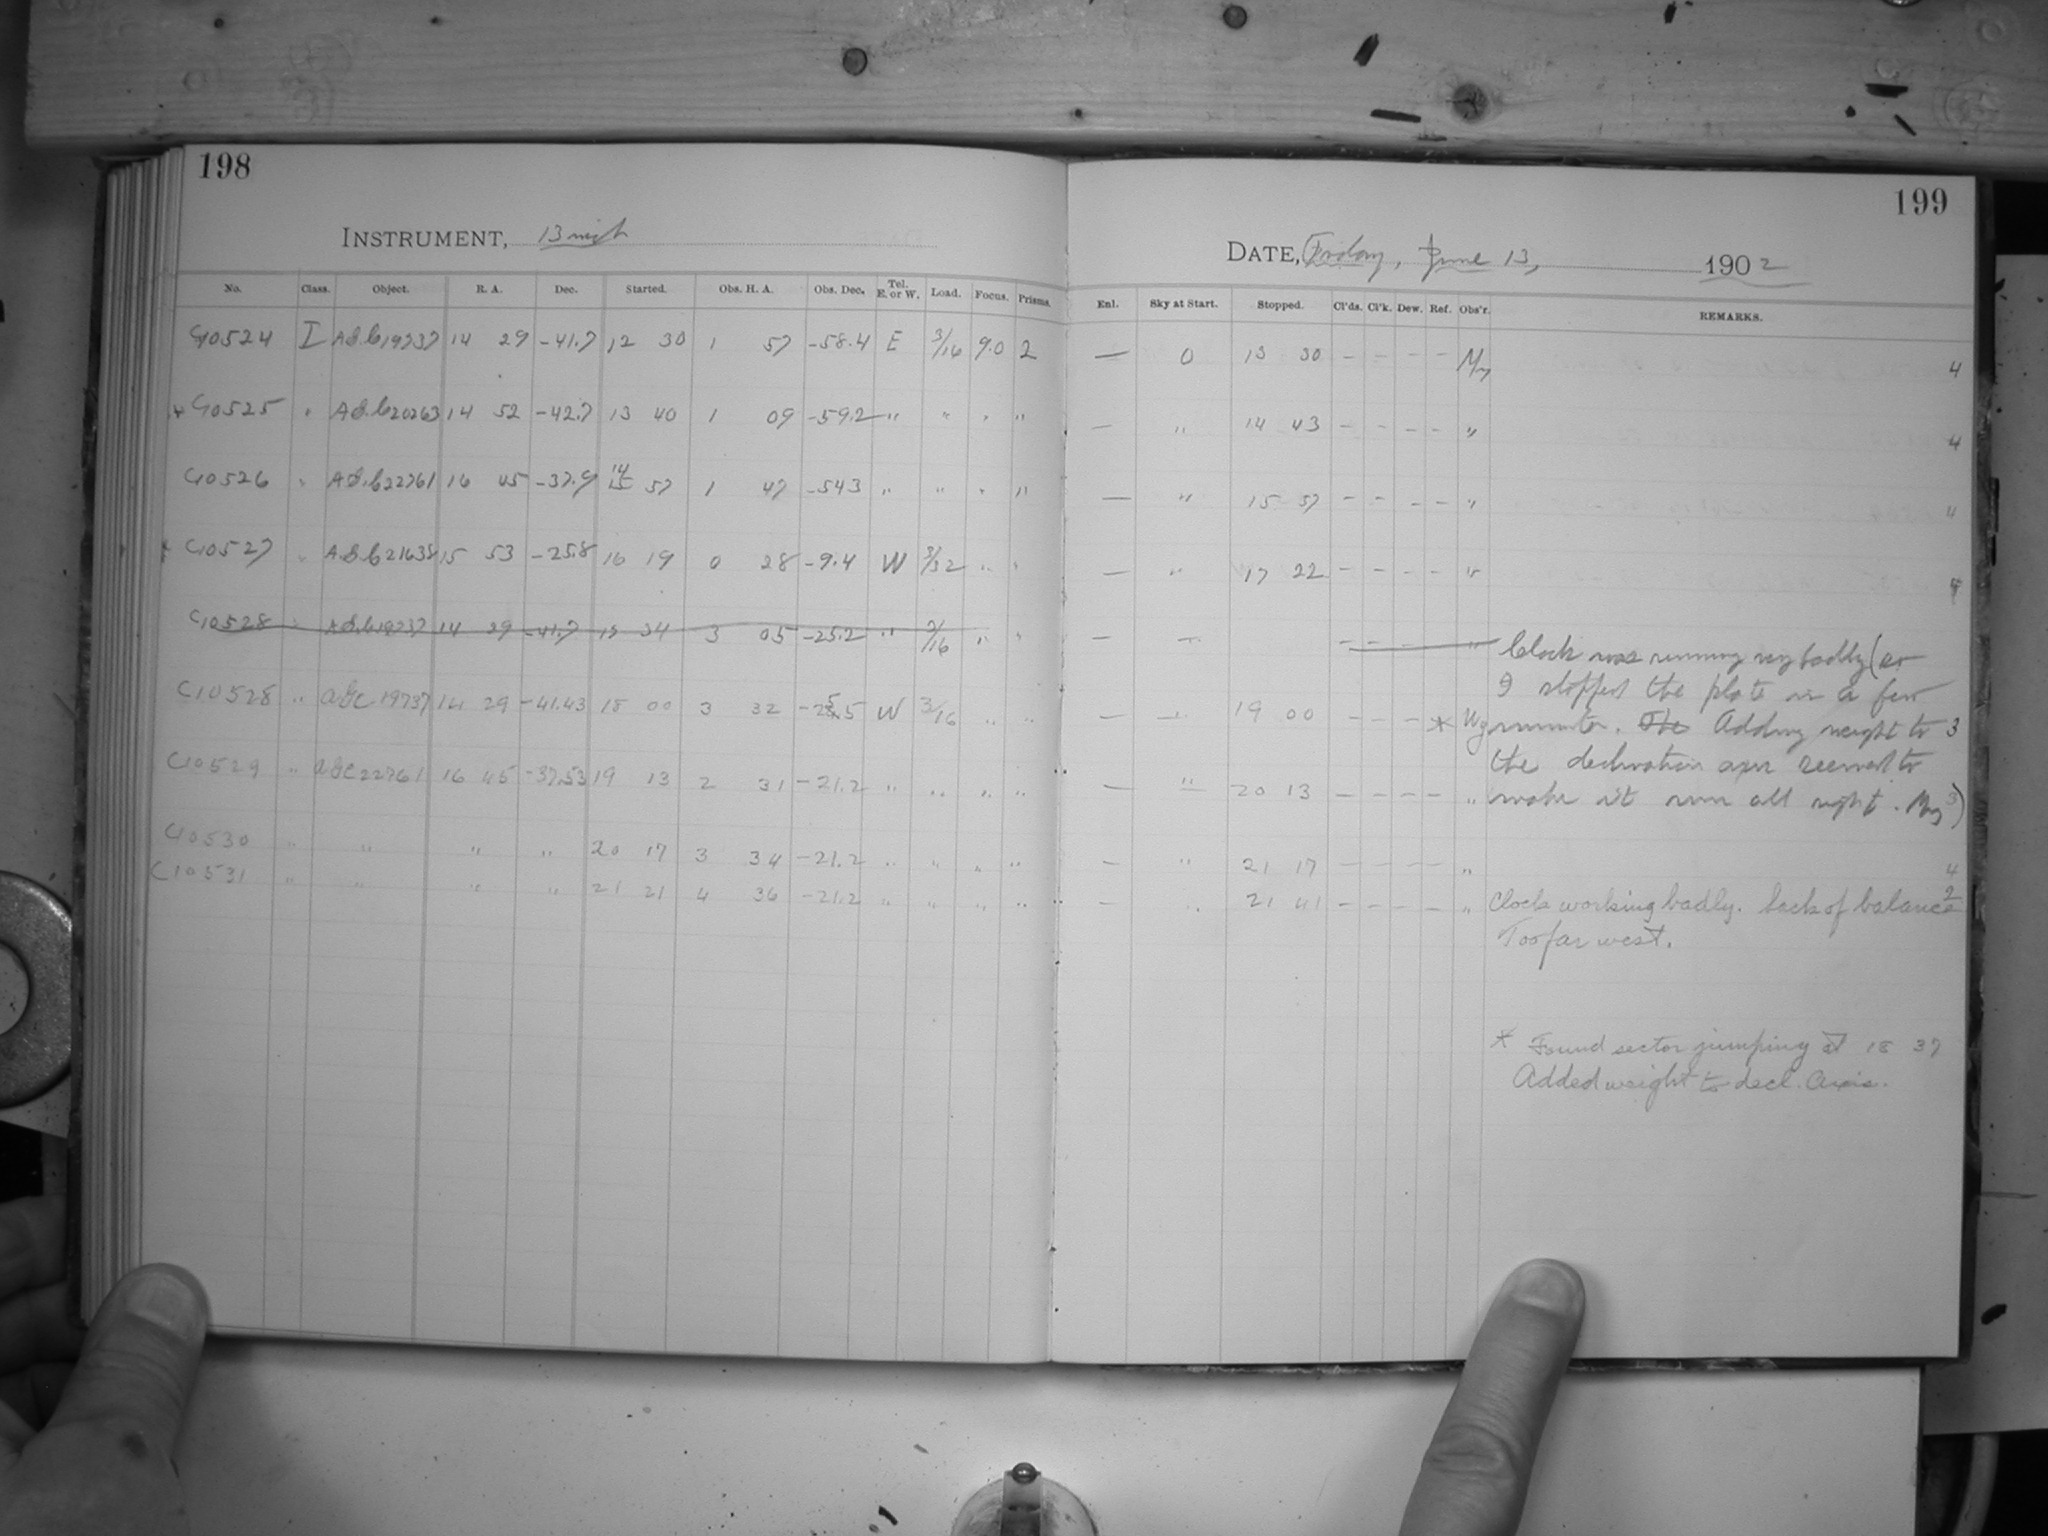 198
INSTRUMENT, 13 inch
No. Class. Object. R. A. Dec. Started. Obs. H. A. Obs. Dec. Tel. E. or W. Load. Focus. Prisms.
C10524 I AGC19737 14 29 -41.7 12 30 1 57 -58.4 E 3/16 9.0 2
C10525 " AGC20263 14 52 -42.7 13 40 1 09 -59.2 " " " "
C10526 " AGC22761 16 45 -37.9 14 57 1 47 -54.3 " " " "
C10527 " AGC21638 15 53 -25.8 16 19 0 28 -9.4 W 3/32 " "
C10528 " AGC19737 14 29 -41.7 17 34 3 05 -25.2 " 3/16 " "
C10528 " AGC 19737 14 29 -41.43 18 00 3 32 -25.5 W 3/16 " "
C10529 " AGC22761 16 45 -37.53 19 13 2 31 -21.2 " " " "
C10530 " " " " 20 17 3 34 -21.2 " " " "
C10531 " " " " 21 21 4 36 -21.2 " " " "
199
DATE, Friday, June 13, 1902
Enl. Sky at Start. Stopped. Cl'ds. Cl'k. Dew. Ref. Obs'r. REMARKS.
— 0 13 30 - - - - 4
— " 14 43 - - - - " 4
— " 15 57 - - - - " 4
— " 17 22 - - - - " 4
— " - - "
Clock was running very badly (so
I stopped the plate in a few
— " 19 00 - - - * minutes. The Adding weight to 3
the declination axis seemed to
— " 20 13 - - - - " make it run all right. 3)
— " 21 17 - - - - " 4
— " 21 41 - - - - " Clock working badly. Lack of balance 2
Too far west.
* Found sector jumping at 18 37
Added weight to decl. Axis.